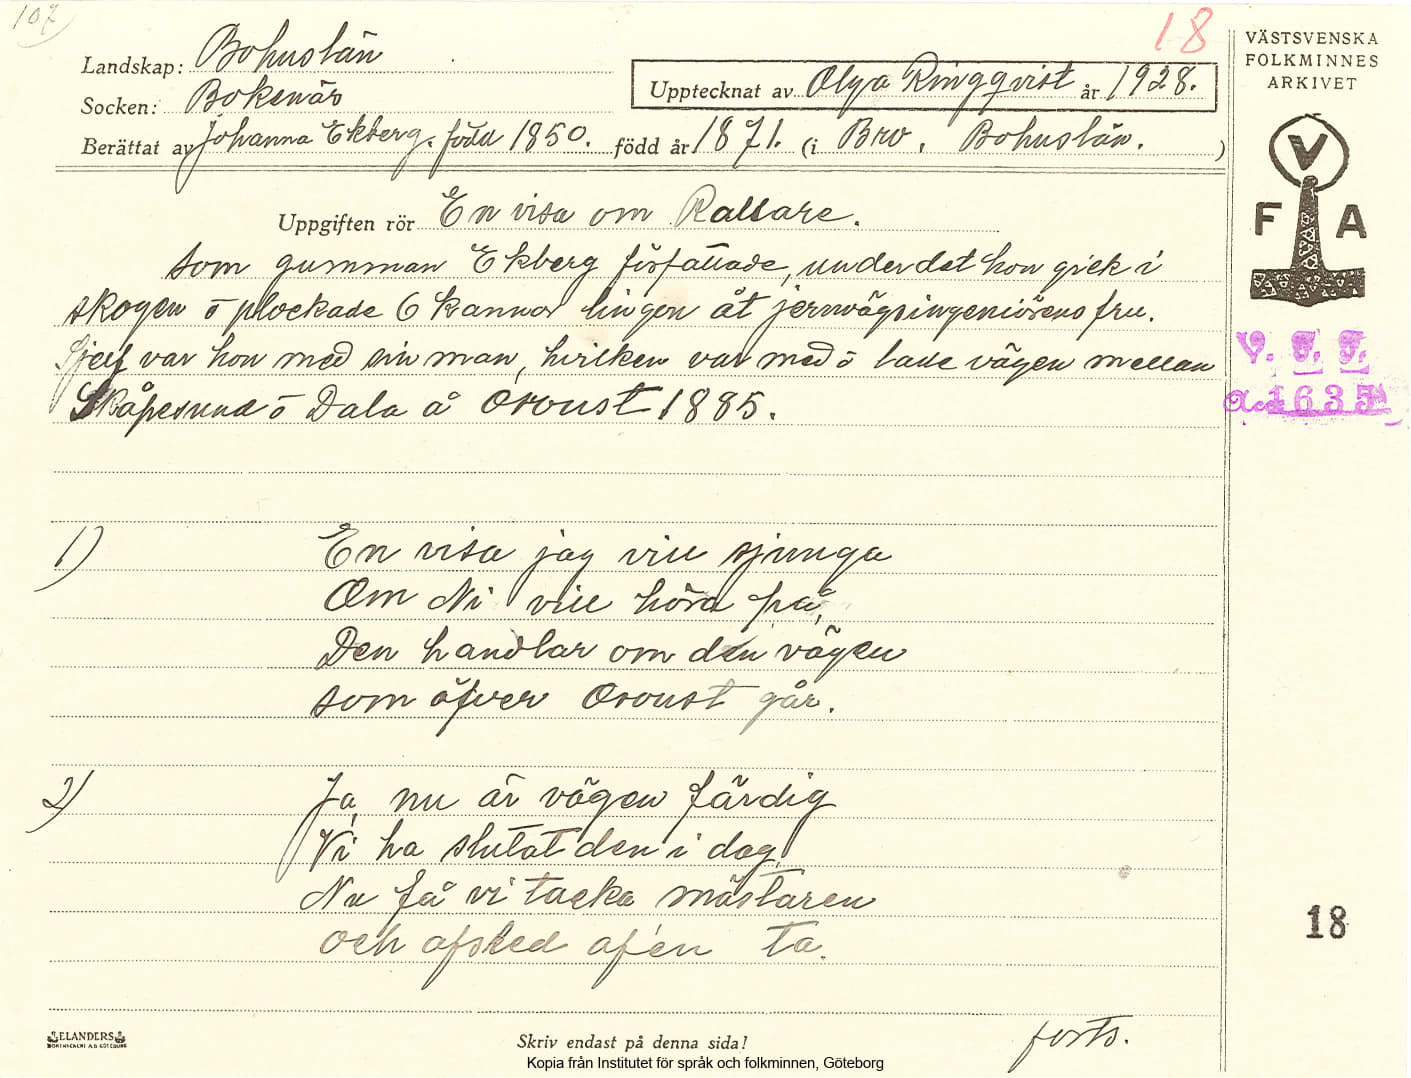 107
18
Landskap: Bohuslän
Socken: Bokenäs
Upptecknat av Olga Ringqvist år 1928.
Berättat av Johanna Ekberg. född 1850. född år 1871. (i Bro, Bohuslän. )
VÄSTSVENSKA
FOLKMINNES
ARKIVET
V
F A
V. F. F.
Acc 1635
Uppgiften rör En visa om Rallare.
som gumman Ekberg författade, under det hon gick i
skogen o plockade 6 kannor lingon åt jernvägsingeniörens fru.
Sjelf var hon med sin man, hvilken var med o lade vägen mellan
Skåpesund o Dala å Oroust 1885.
1) En visa jag vill sjunga
Om Ni vill höra på,
Den handlar om den vägen
som öfver Oroust går.
2) Ja, nu är vägen färdig
Vi ha slutat den i dag,
Nu få vi tacka mästaren
och afsked af'en ta.
18
forts.
ELANDERS
BOKTRYCKERI A.B. GÖTEBORG
Skriv endast på denna sida!
Kopia från Institutet för språk och folkminnen, Göteborg